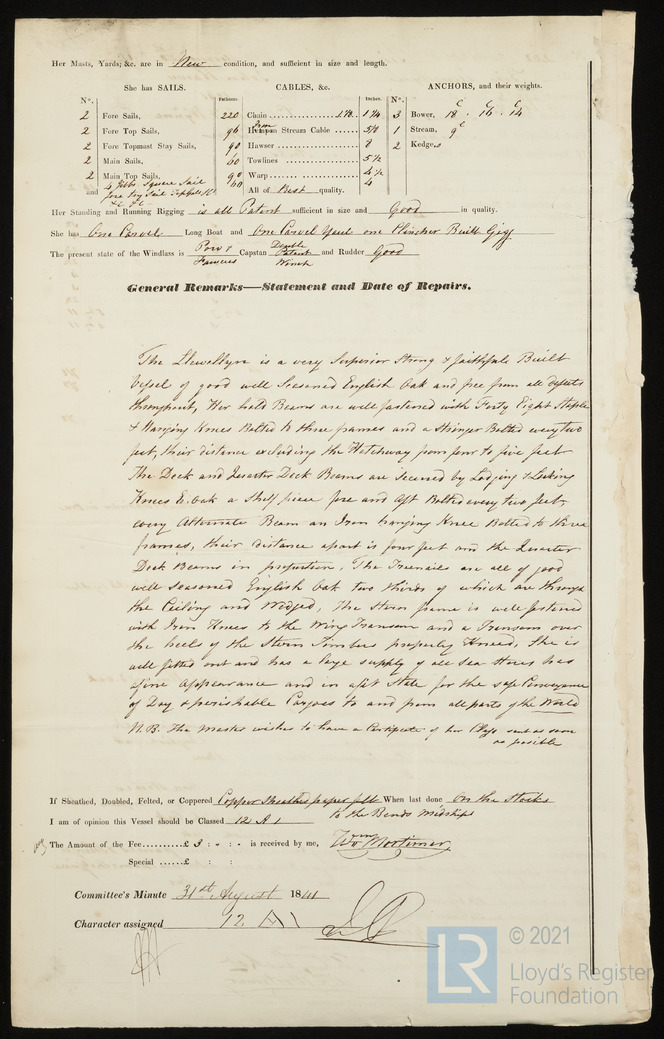 Her Masts, Yards, &c. are in New condition, and sufficient in size and length.
She has SAILS. CABLES, &c. ANCHORS, and their weights.
N°. Fathoms. Inches. N°.
2 Fore Sails, 220 Chain 1 1/4 3 Bower, 18 c . 16 c . 14 c
2 Fore Top Sails, 96 Iron Stream Cable 5/8 1 Stream, 9 c
2 Fore Topmast Stay Sails, 90 Hawser 8 2 Kedges
2 Main Sails, 60 Towlines 5 1/2
2 Main Top Sails, 90 Warp 4 1/2
and 4 Jibs Square Sail 60 4
fore Try Sail All of Best quality.
&c &c
Her Standing and Running Rigging is all Patent sufficient in size and Good in quality.
She has One Carvel Long Boat and One Carvel Yawl one Clincher Built Gigg
The present state of the Windlass is Capstan Double Patent Winch and Rudder Good
General Remarks—Statement and Date of Repairs.
The Llewellyn is a very Superior Strong & faithfull Built
Vessel of good well Seasoned English Oak and free from all defects
throughout, Her hold Beams are well fastened with Forty Eight Staple
& Hanging Knees Bolted to three frames and a Stringer Bolted every two
feet, their distance excluding the Hatchway from four to five feet
The Deck and Quarter Deck Beams are Secured by Lodging & Locking
Knees E. Oak a Shelf piece fore and aft Bolted every two feet,
every Alternate Beam an Iron hanging Knee Bolted to three
frames, their distance apart is four feet and the Quarter
Deck Beams in proportion, The Treenails are all of good
well seasoned English Oak two thirds of which are through
the Ceiling and Wedged, The Stern frame is well fastened
with Iron Knees to the Wing Transom and a Transom over
the heels of the Stern Timbers properly Kneed, She is
well fitted out and has a large supply of all Sea Stores has
a fine appearance and in a fit State for the safe Conveyance
of Dry & perishable Cargoes to and from all parts of the World
N.B. The Master wishes to have a Certificate of her Class sent as soon
as possible
If Sheathed, Doubled, Felted, or Coppered Copper Sheathed paper felt When last done On the Stocks
to the Bends Midships
I am of opinion this Vessel should be Classed 12 A 1
The Amount of the Fee £ 3 : - : - is received by me, Wm Mortimer
Special £ : :
Committee's Minute 31st August 1841
Character assigned 12 A1
LR © 2021
Lloyd's Register
Foundation